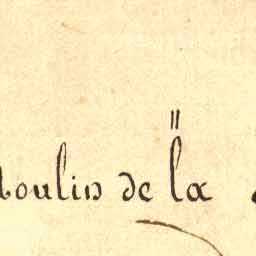 oulin de la